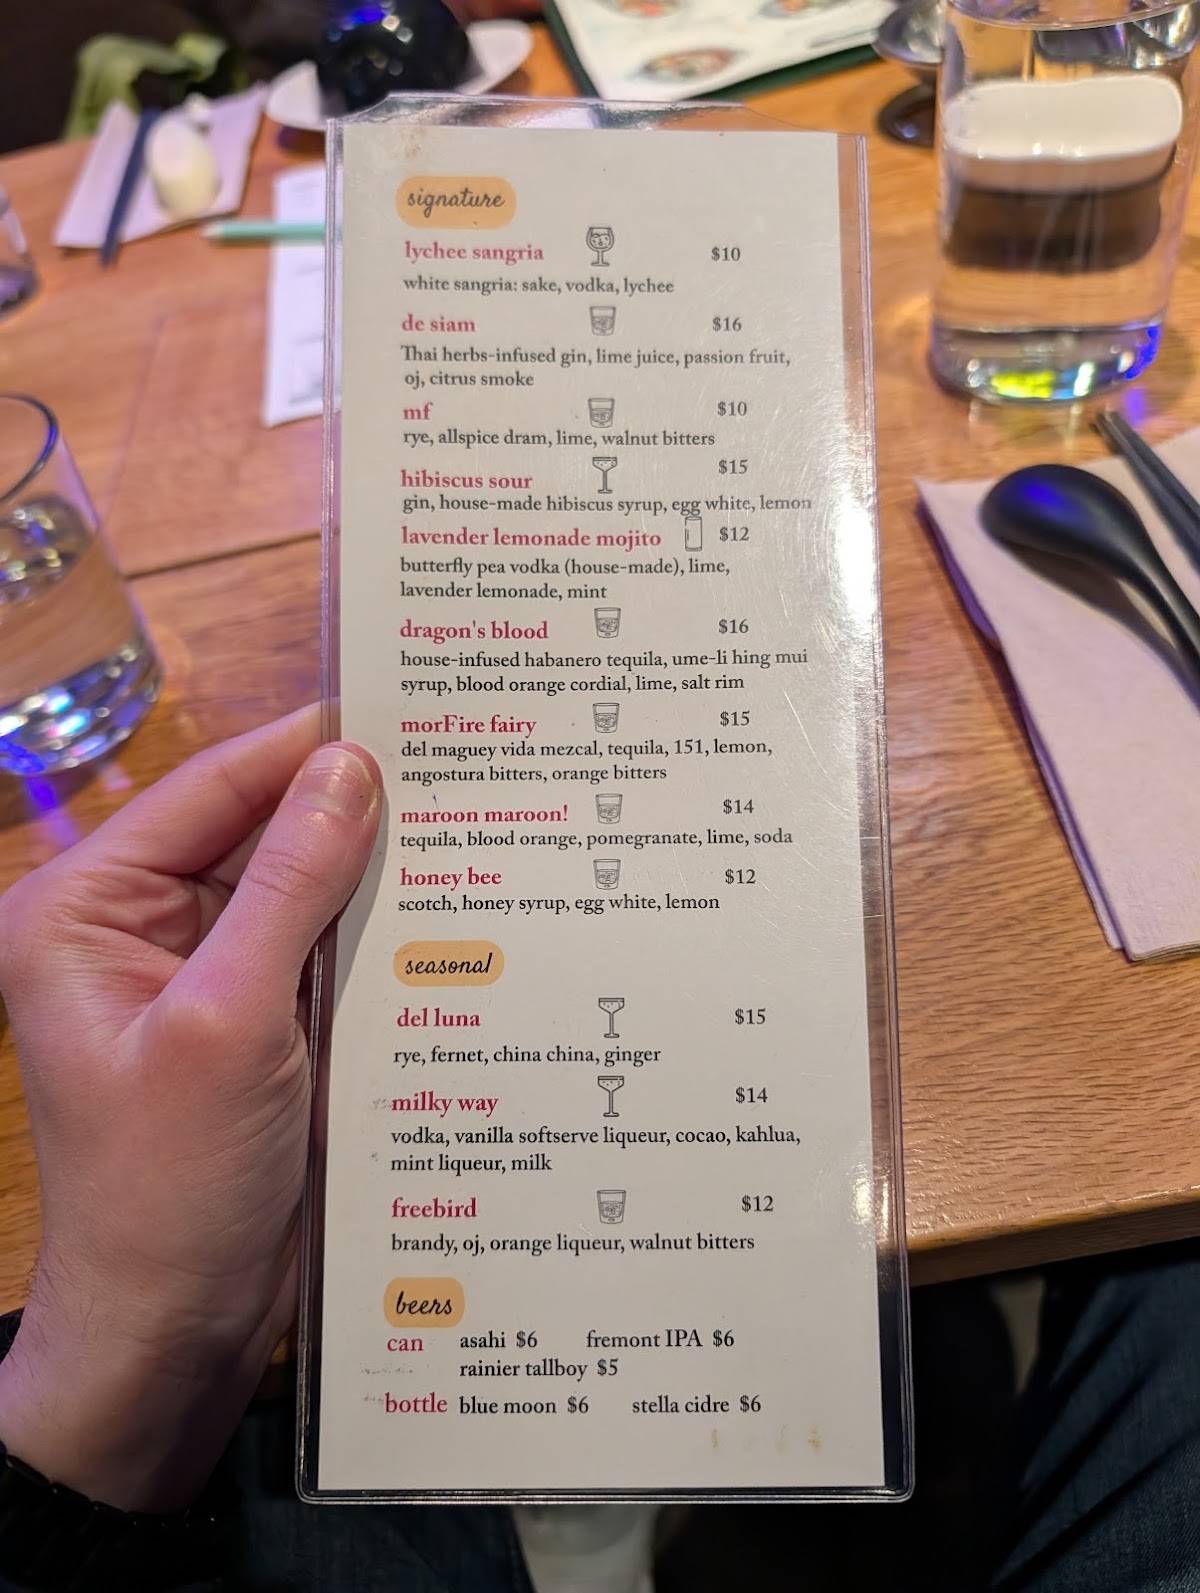 signature
lychee sangria $10
white sangria: sake, vodka, lychee
de siam $16
Thai herbs-infused gin, lime juice, passion fruit,
oj, citrus smoke
mf $10
rye, allspice dram, lime, walnut bitters
hibiscus sour $15
gin, house-made hibiscus syrup, egg white, lemon
lavender lemonade mojito $12
butterfly pea vodka (house-made), lime,
lavender lemonade, mint
dragon's blood $16
house-infused habanero tequila, ume-li hing mui
syrup, blood orange cordial, lime, salt rim
morFire fairy $15
del maguey vida mezcal, tequila, 151, lemon,
angostura bitters, orange bitters
maroon maroon! $14
tequila, blood orange, pomegranate, lime, soda
honey bee $12
scotch, honey syrup, egg white, lemon
seasonal
del luna $15
rye, fernet, china china, ginger
milky way $14
vodka, vanilla softserve liqueur, cocao, kahlua,
mint liqueur, milk
freebird $12
brandy, oj, orange liqueur, walnut bitters
beers
can asahi $6 fremont IPA $6
rainier tallboy $5
bottle blue moon $6 stella cidre $6